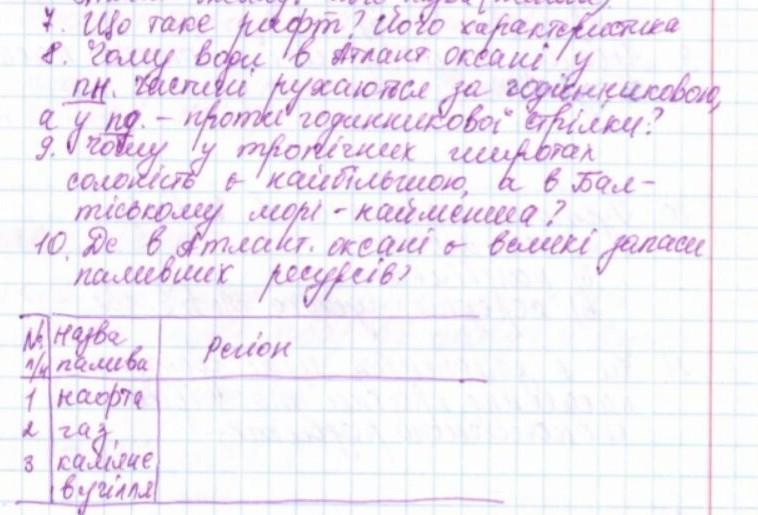 7. Що таке рифт? Його характеристика
8. Чому води в Атлант. океані у
пн. частині рухаються за годинниковою,
а у пд. - проти годинникової стрілки?
9. Чому у тропічних широтах
солоність є найбільшою, а в Бал-
тійському морі - найменша?
10. Де в Атлант. океані є великі запаси
паливних ресурсів?
№ п/п | Назва палива | Регіон
1 | нафта
2 | газ
3 | кам'яне вугілля